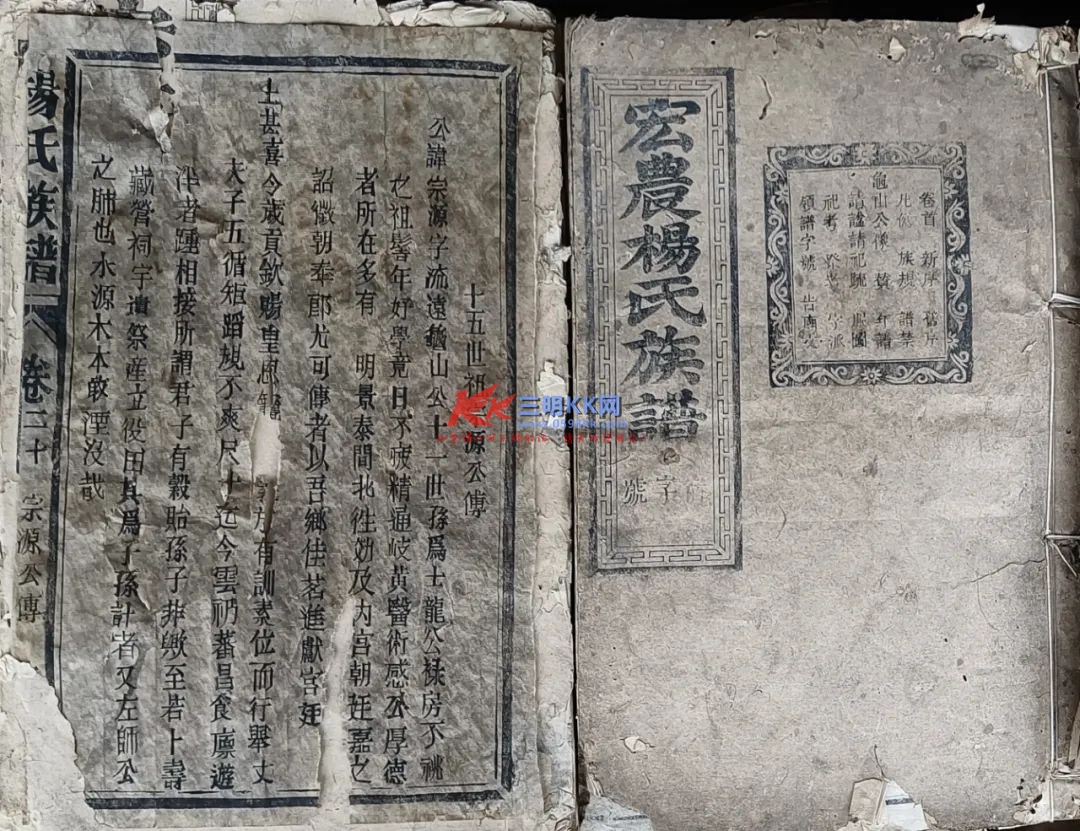 宏農楊氏族譜
字
號
卷首 新序 舊序
凡例 族規 譜禁
龜山公像 贊 年譜
請謚請祀疏 服圖
祀考 字派
領譜字號 告廟文
十五世祖 源公傳
公諱宗源字流遠龜山公十一世孫爲士龍公祿房不祧
之祖髫年好學竟日不疲精通岐黃醫術感公厚德
者所在多有 明景泰間北徃効及内宫朝廷嘉之
詔徵朝奉郎尤可傳者以吾鄉佳茗進獻宫廷
上甚喜今歲貢欽賜皇恩寵 義方有訓素位而行舉丈
夫子五循矩蹈規不爽尺寸迄今雲礽蕃昌食廪遊
泮者踵相接所謂君子有穀貽孫子非歟至若卜壽
藏營祠宇遺祭產立役田其爲子孫計者又左師公
之肺也水源木本敢湮沒哉
楊氏族譜 卷二十 宗源公傳
三明KK网